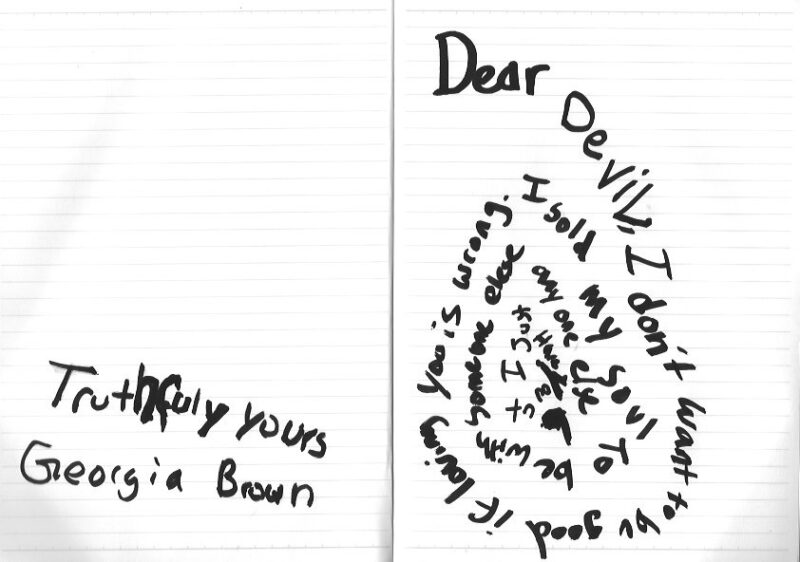 Dear Devil, I don't want to be good if loving you is wrong.
I sold my soul To be with someone else
any one else
I Just
Truthfuly yours
Georgia Brown